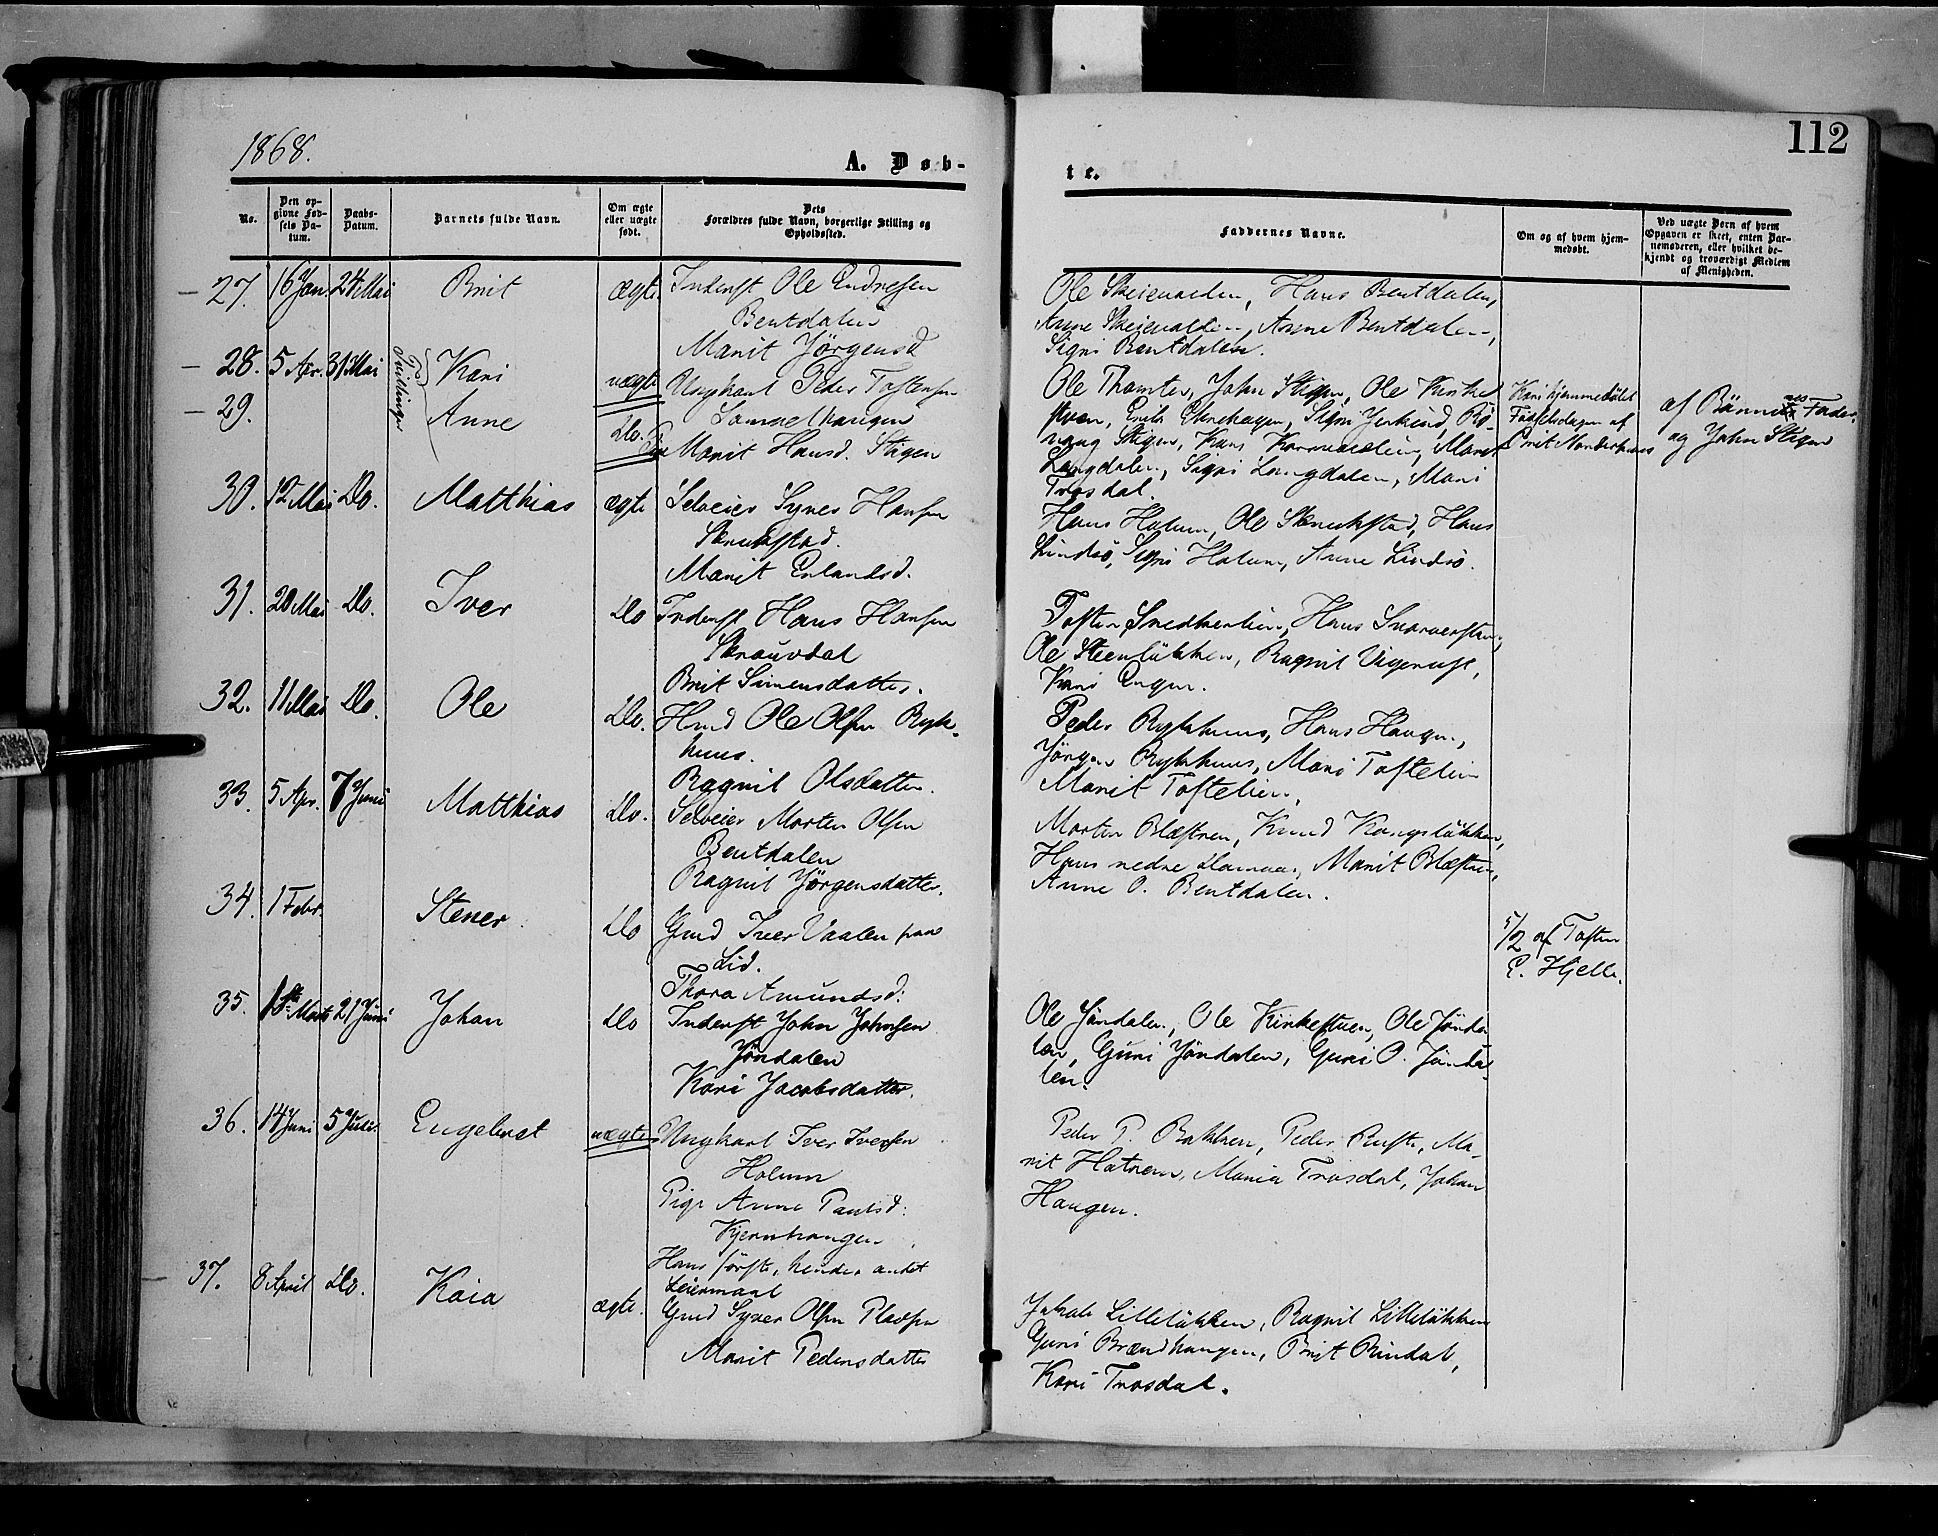 1868.
A. Døb-
te.
112
No.
Den op-
givne Fød-
sels Da-
tum.
Daabs-
Datum.
Barnets fulde Navn.
Om ægte
eller uægte
født.
Dets
Forældres fulde Navn, borgerlige Stilling og
Opholdssted.
Faddernes Navne.
Om og af hvem hjem-
medøbt.
Ved uægte Børn af hvem
Opgaven er skeet, enten Bar-
nemoderen, eller hvilket be-
kjendt og troværdigt Medlem
af Menigheden.
27. 16 Jan 24 Mai Brit ægte Inderst Ole Endresen
Bentdalen
Marit Jörgensd
Ole Skeievalden, Hans Bentdalen,
Anne Skeievalden, Anne Bentdalen,
Signi Bentdalen.
28. 5 Apr. 31 Mai Tvillinger Kari uægte Ungkarl Peder Tostensen
29. Anne Do.
Marit Hansd. Stigen
Ole Thamter, John Stigen, Ole Kirke
stuen,
Langdalen, Signi Langdalen, Mari
Trosdal.
Kari hjemmedöbt
Födselsdagen af
Brit
af Fader
og John Stigen
30. 12 Mai Do. Matthias ægte Selveier Syver Hansen
Skrukstad.
Marit Erlandsd.
Hans Holum, Ole Skrukstad, Hans
Lindsö, Signi Holum, Anne Lindsö.
31. 20 Mai Do. Iver Do Inderst Hans Hansen
Skrauvdal
Brit Simensdatter.
Tosten Snedkerlien, Hans
Ole Steenlükken, Ragnil Vigerust,
Kari Engen.
32. 11 Mai Do. Ole Do. Hmd Ole Olsen Ryk-
huus.
Ragnil Olsdatter.
Peder Rykhuus, Hans Haugen,
Jörgen Rykhuus, Mari Toftelien
Marit Toftelien.
33. 5 Apr. 7 Juni Matthias Do. Selveier Morten Olsen
Bentdalen
Ragnil Jörgensdatter.
Morten Blæstren, Knud Kongslükken,
Hans nedre, Marit Blæstren,
Anne O. Bentdalen.
34. 1 Febr. Stener Do Gmd Iver Vaalen paa
Lid.
Thora Amundsd:
5/2 af Tosten
E. Hjelle.
35. Marts 21 Juni Johan Do Inderst John Johnsen
Jöndalen
Kari Jacobsdatter.
Ole Jöndalen, Ole Kirkestuen, Ole Jönda-
len, Guri Jöndalen, Guri O. Jönda-
len.
36. 14 Juni 5 Juli Engebret uægte Ungkarl Iver Iversen
Holum
Pige Anne Paulsd:
Kjernhaugen
Hans förste, hendes andet
Leiermaal
Peder P. Bakken, Peder Rust, Ma-
rit Hatrem, Maria Trosdal, Johan
Haugen.
37. 8 April Do. Kaia ægte. Gmd Syver Olsen Pladsen
Marit Pedersdatter
Jakob Lillelükken, Ragnil Lillelükken
Guri Brændhaugen, Brit Rindal,
Kari Trosdal.